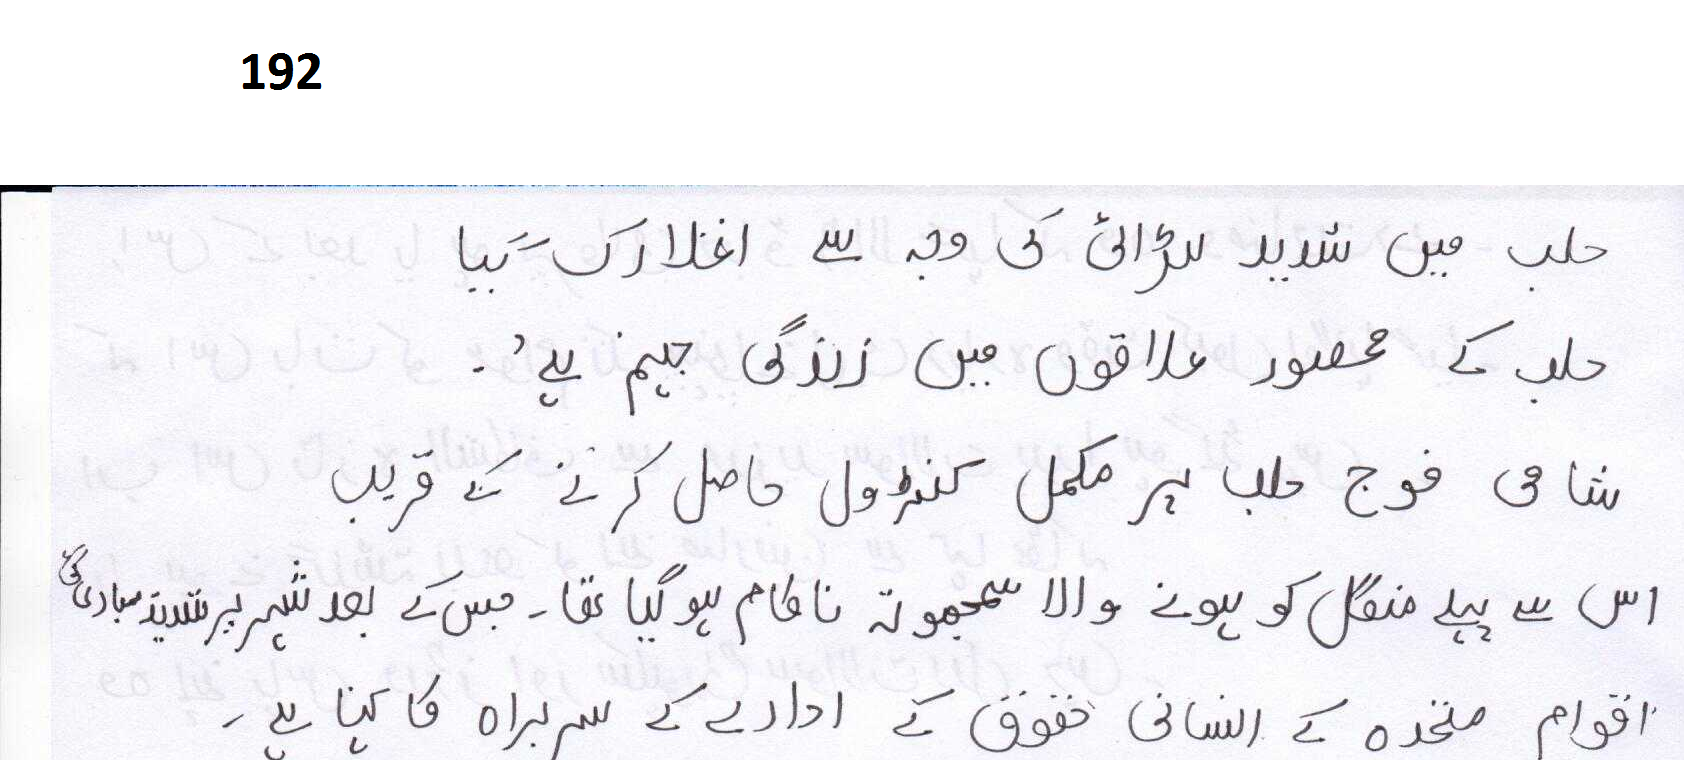 192
حلب میں شدید لڑائی کی وجہ سے انخلا رک گیا
حلب کے محصور علاقوں میں زندگی جہنم ہے'۔
شامی فوج حلب پر مکمل کنٹرول حاصل کرنے کے قریب
اس سے پہلے منگل کو ہونے والا سمجھوتہ ناکام ہو گیا تھا۔ جس کے بعد شہر پر شدید بمباری کی گئی
اقوام متحدہ کے انسانی حقوق کے ادارے کے سربراہ کا کہنا ہے۔